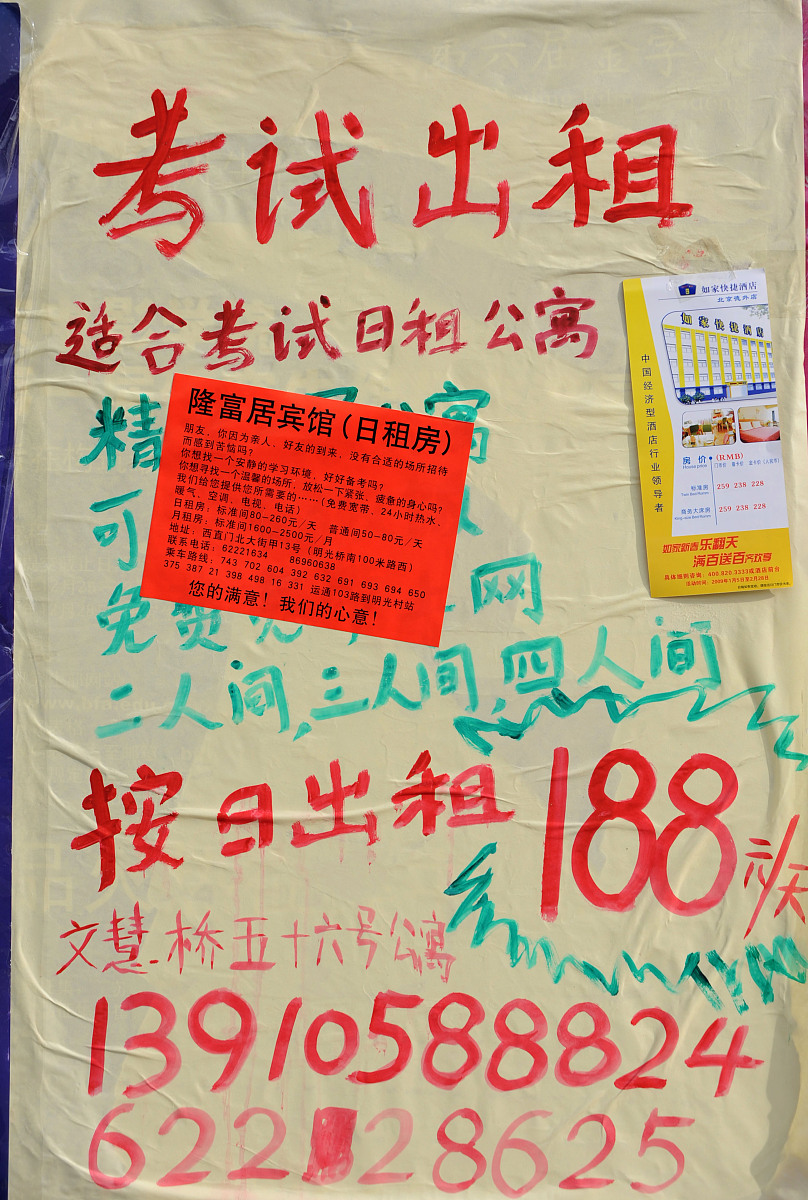 考试出租
适合考试日租公寓
精
寓
可
免费
网
二人间,三人间,四人间
按日出租 188元/天
文慧桥五十六号公寓
13910588824
622 28625
隆富居宾馆(日租房)
朋友，你因为亲人、好友的到来，没有合适的场所招待
而感到苦恼吗?
你想找一个安静的学习环境，好好备考吗?
你想寻找一个温馨的场所，放松一下紧张、疲惫的身心吗?
我们给您提供您所需要的……(免费宽带、24小时热水、
暖气、空调、电视、电话)
日租房：标准间80—260元/天 普通间50—80元/天
月租房：标准间1600—2500元/月
地址：西直门北大街甲13号（明光桥南100米路西）
联系电话：62221634 86960638
乘车路线：743 702 604 392 632 691 693 694 650
375 387 21 398 498 16 331 运通103路到明光村站
您的满意！我们的心意！
如家快捷酒店
北京德外店
如家快捷酒店
中国经济型酒店行业领导者
房价 (RMB)
标准房 259 238 228
商务大床房 259 238 228
如家新春乐翻天
满百送百齐欢享
具体细则咨询：400.820.3333或酒店前台
活动时间：2009年1月5日至2月28日